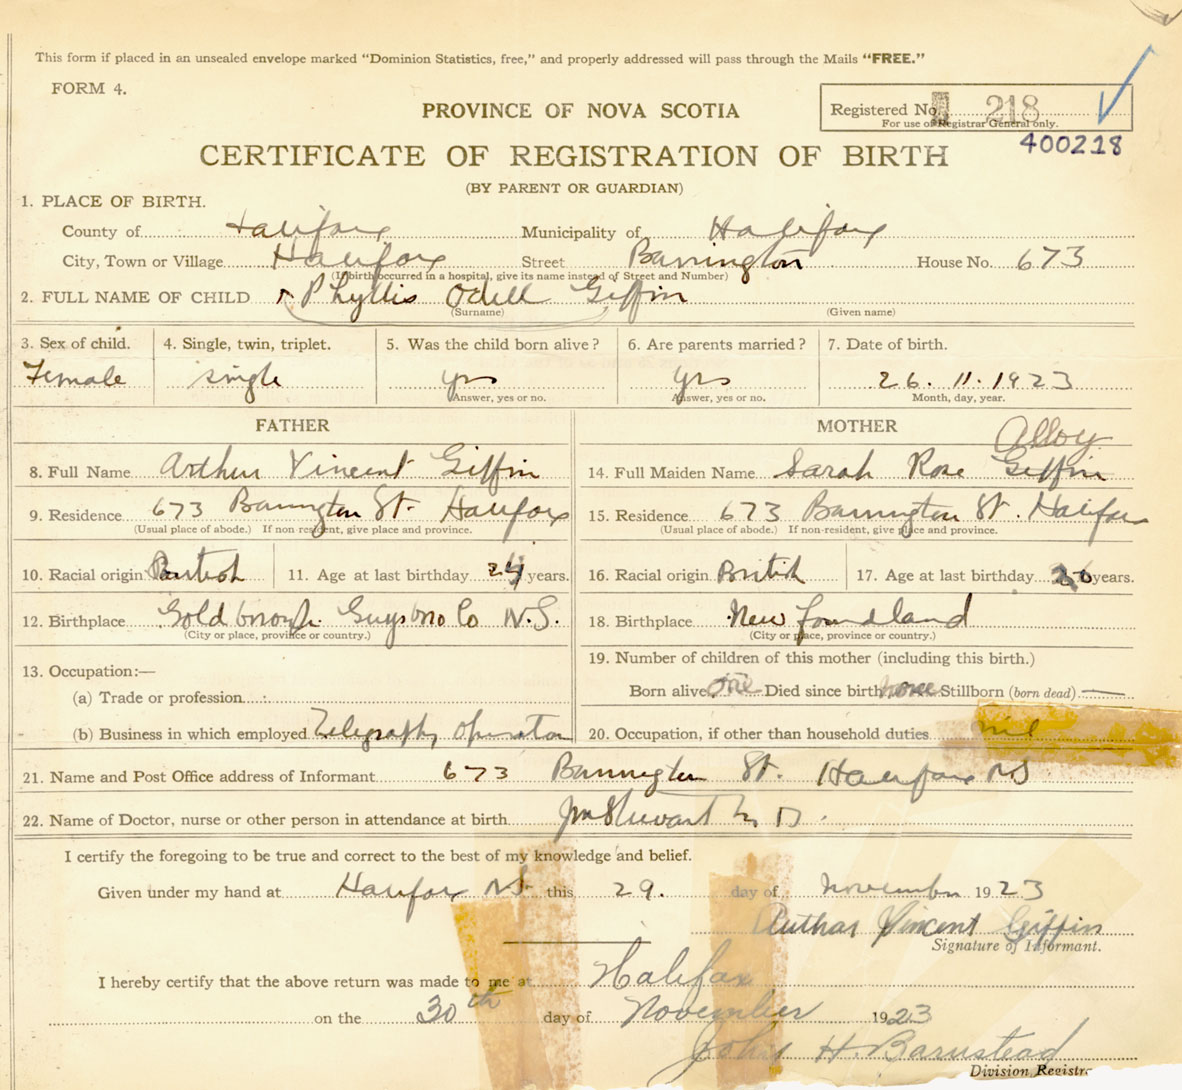 This form if placed in an unsealed envelope marked "Dominion Statistics, free," and properly addressed will pass through the Mails "FREE."
FORM 4.
PROVINCE OF NOVA SCOTIA
Registered No. 218
For use of Registrar General only.
400218
CERTIFICATE OF REGISTRATION OF BIRTH
(BY PARENT OR GUARDIAN)
1. PLACE OF BIRTH.
County of Halifax Municipality of Halifax
City, Town or Village Halifax Street Barrington House No. 673
(If birth occurred in a hospital, give its name instead of Street and Number)
2. FULL NAME OF CHILD Phyllis Odell Giffin
(Surname) (Given name)
3. Sex of child. 4. Single, twin, triplet. 5. Was the child born alive? 6. Are parents married? 7. Date of birth.
Female single yes yes 26.11.1923
Answer, yes or no. Answer, yes or no. Month, day, year.
FATHER MOTHER
Alloy
8. Full Name Arthur Vincent Giffin 14. Full Maiden Name Sarah Rose Giffin
9. Residence 673 Barrington St. Halifax 15. Residence 673 Barrington St. Halifax
(Usual place of abode.) If non resident, give place and province. (Usual place of abode.) If non-resident, give place and province.
10. Racial origin British 11. Age at last birthday 24 years. 16. Racial origin British 17. Age at last birthday 26 years.
12. Birthplace Goldborough Guysboro Co N.S. 18. Birthplace Newfoundland
(City or place, province or country.) (City or place, province or country.)
13. Occupation:— 19. Number of children of this mother (including this birth.)
(a) Trade or profession Born alive one Died since birth none Stillborn (born dead) —
(b) Business in which employed Telegraph Operator 20. Occupation, if other than household duties nil
21. Name and Post Office address of Informant 673 Barrington St. Halifax NS
22. Name of Doctor, nurse or other person in attendance at birth Stewart M D.
I certify the foregoing to be true and correct to the best of my knowledge and belief.
Given under my hand at Halifax N.S. this 29. day of November 1923
Arthur Vincent Giffin
Signature of Informant.
I hereby certify that the above return was made to me at Halifax
on the 30th day of November 1923
John H. Barnstead
Division Registr